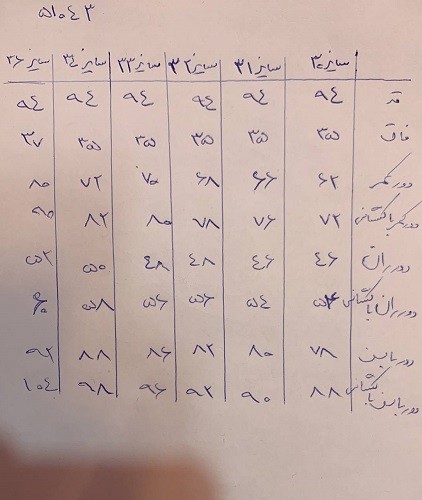 ۵۱۰۴۳
سایز ۳۰ سایز ۳۱ سایز ۳۲ سایز ۳۳ سایز ۳۴ سایز ۳۶
قد ۹۴ ۹۴ ۹۴ ۹۴ ۹۴ ۹۴
فاق ۳۵ ۳۵ ۳۵ ۳۵ ۳۵ ۳۷
دور کمر ۶۲ ۶۶ ۶۸ ۷۰ ۷۲ ۸۰
دور کمر با کشسانی ۷۲ ۷۶ ۷۸ ۸۰ ۸۲ ۹۰
دور ران ۴۶ ۴۶ ۴۸ ۴۸ ۵۰ ۵۲
دور ران با کشسانی ۵۴ ۵۴ ۵۶ ۵۶ ۵۸ ۶۰
دور باسن ۷۸ ۸۰ ۸۲ ۸۶ ۸۸ ۹۲
دور باسن با کشسانی ۸۸ ۹۰ ۹۲ ۹۶ ۹۸ ۱۰۴